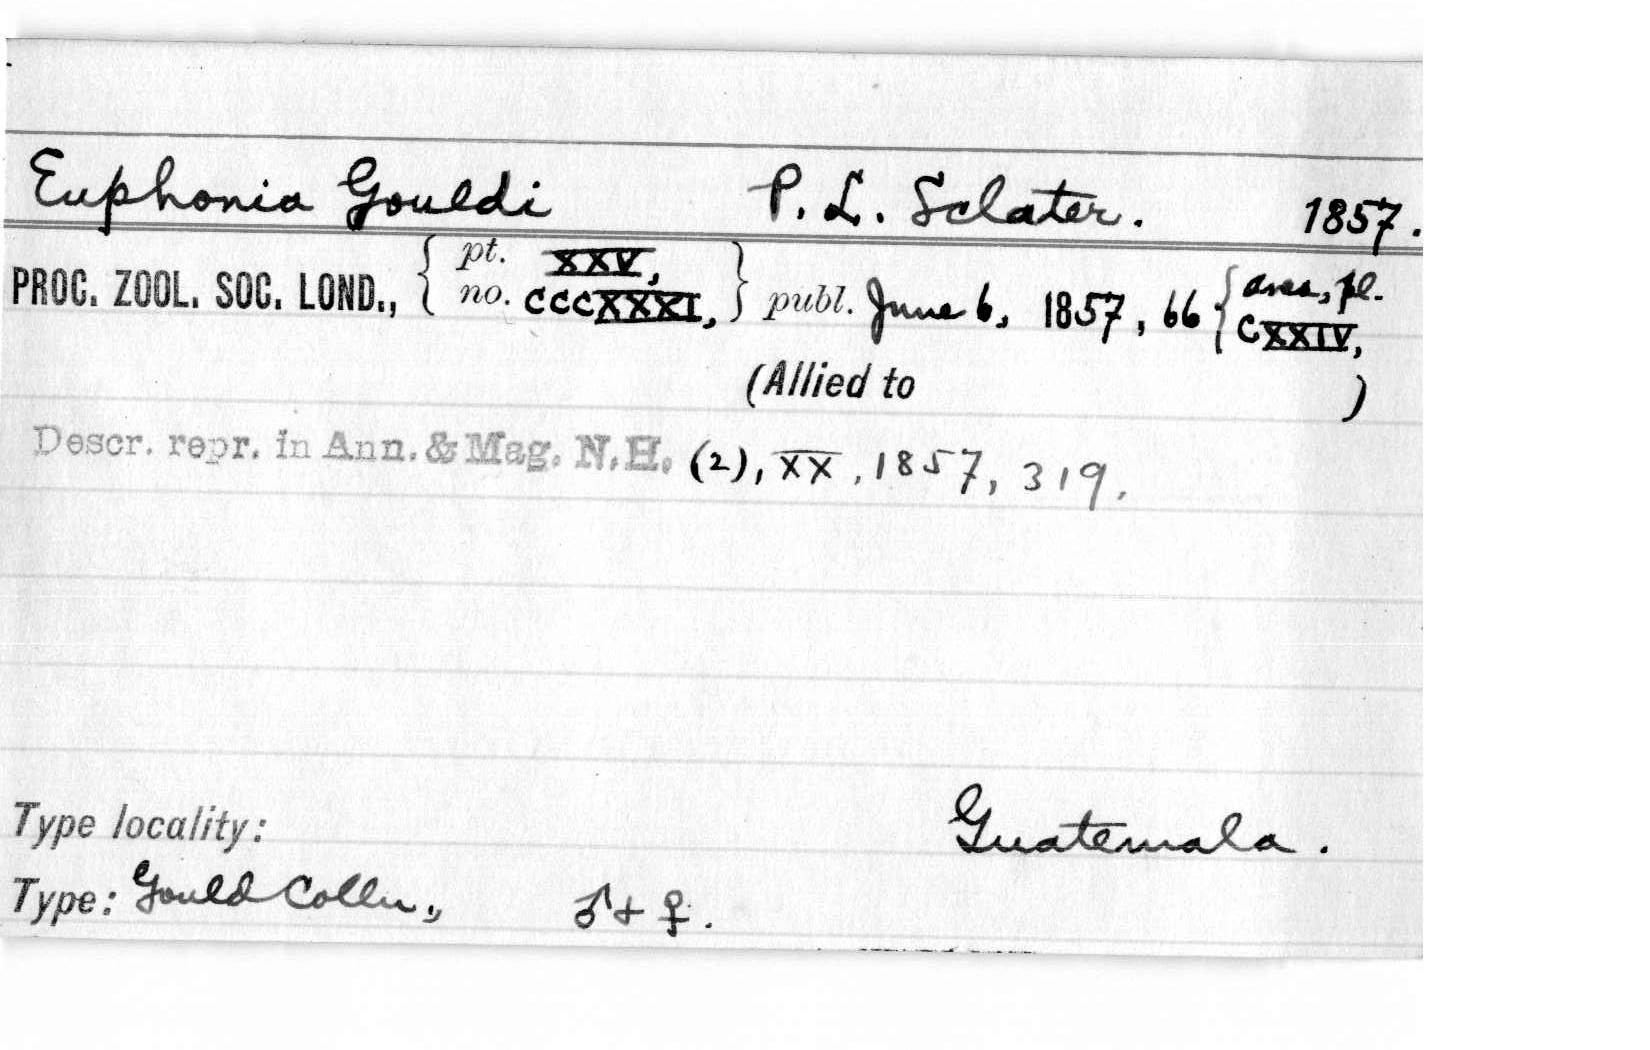 Euphonia Gouldi P. L. Sclater. 1857.
PROC. ZOOL. SOC. LOND., { pt. XXV, no. CCCXXXI, } publ. June 6, 1857, 66 { aves, pl. CXXIV,
(Allied to )
Descr. repr. in Ann. & Mag. N.H. (2), XX, 1857, 319.
Type locality: Guatemala.
Type: Gould Colln., ♂ + ♀.